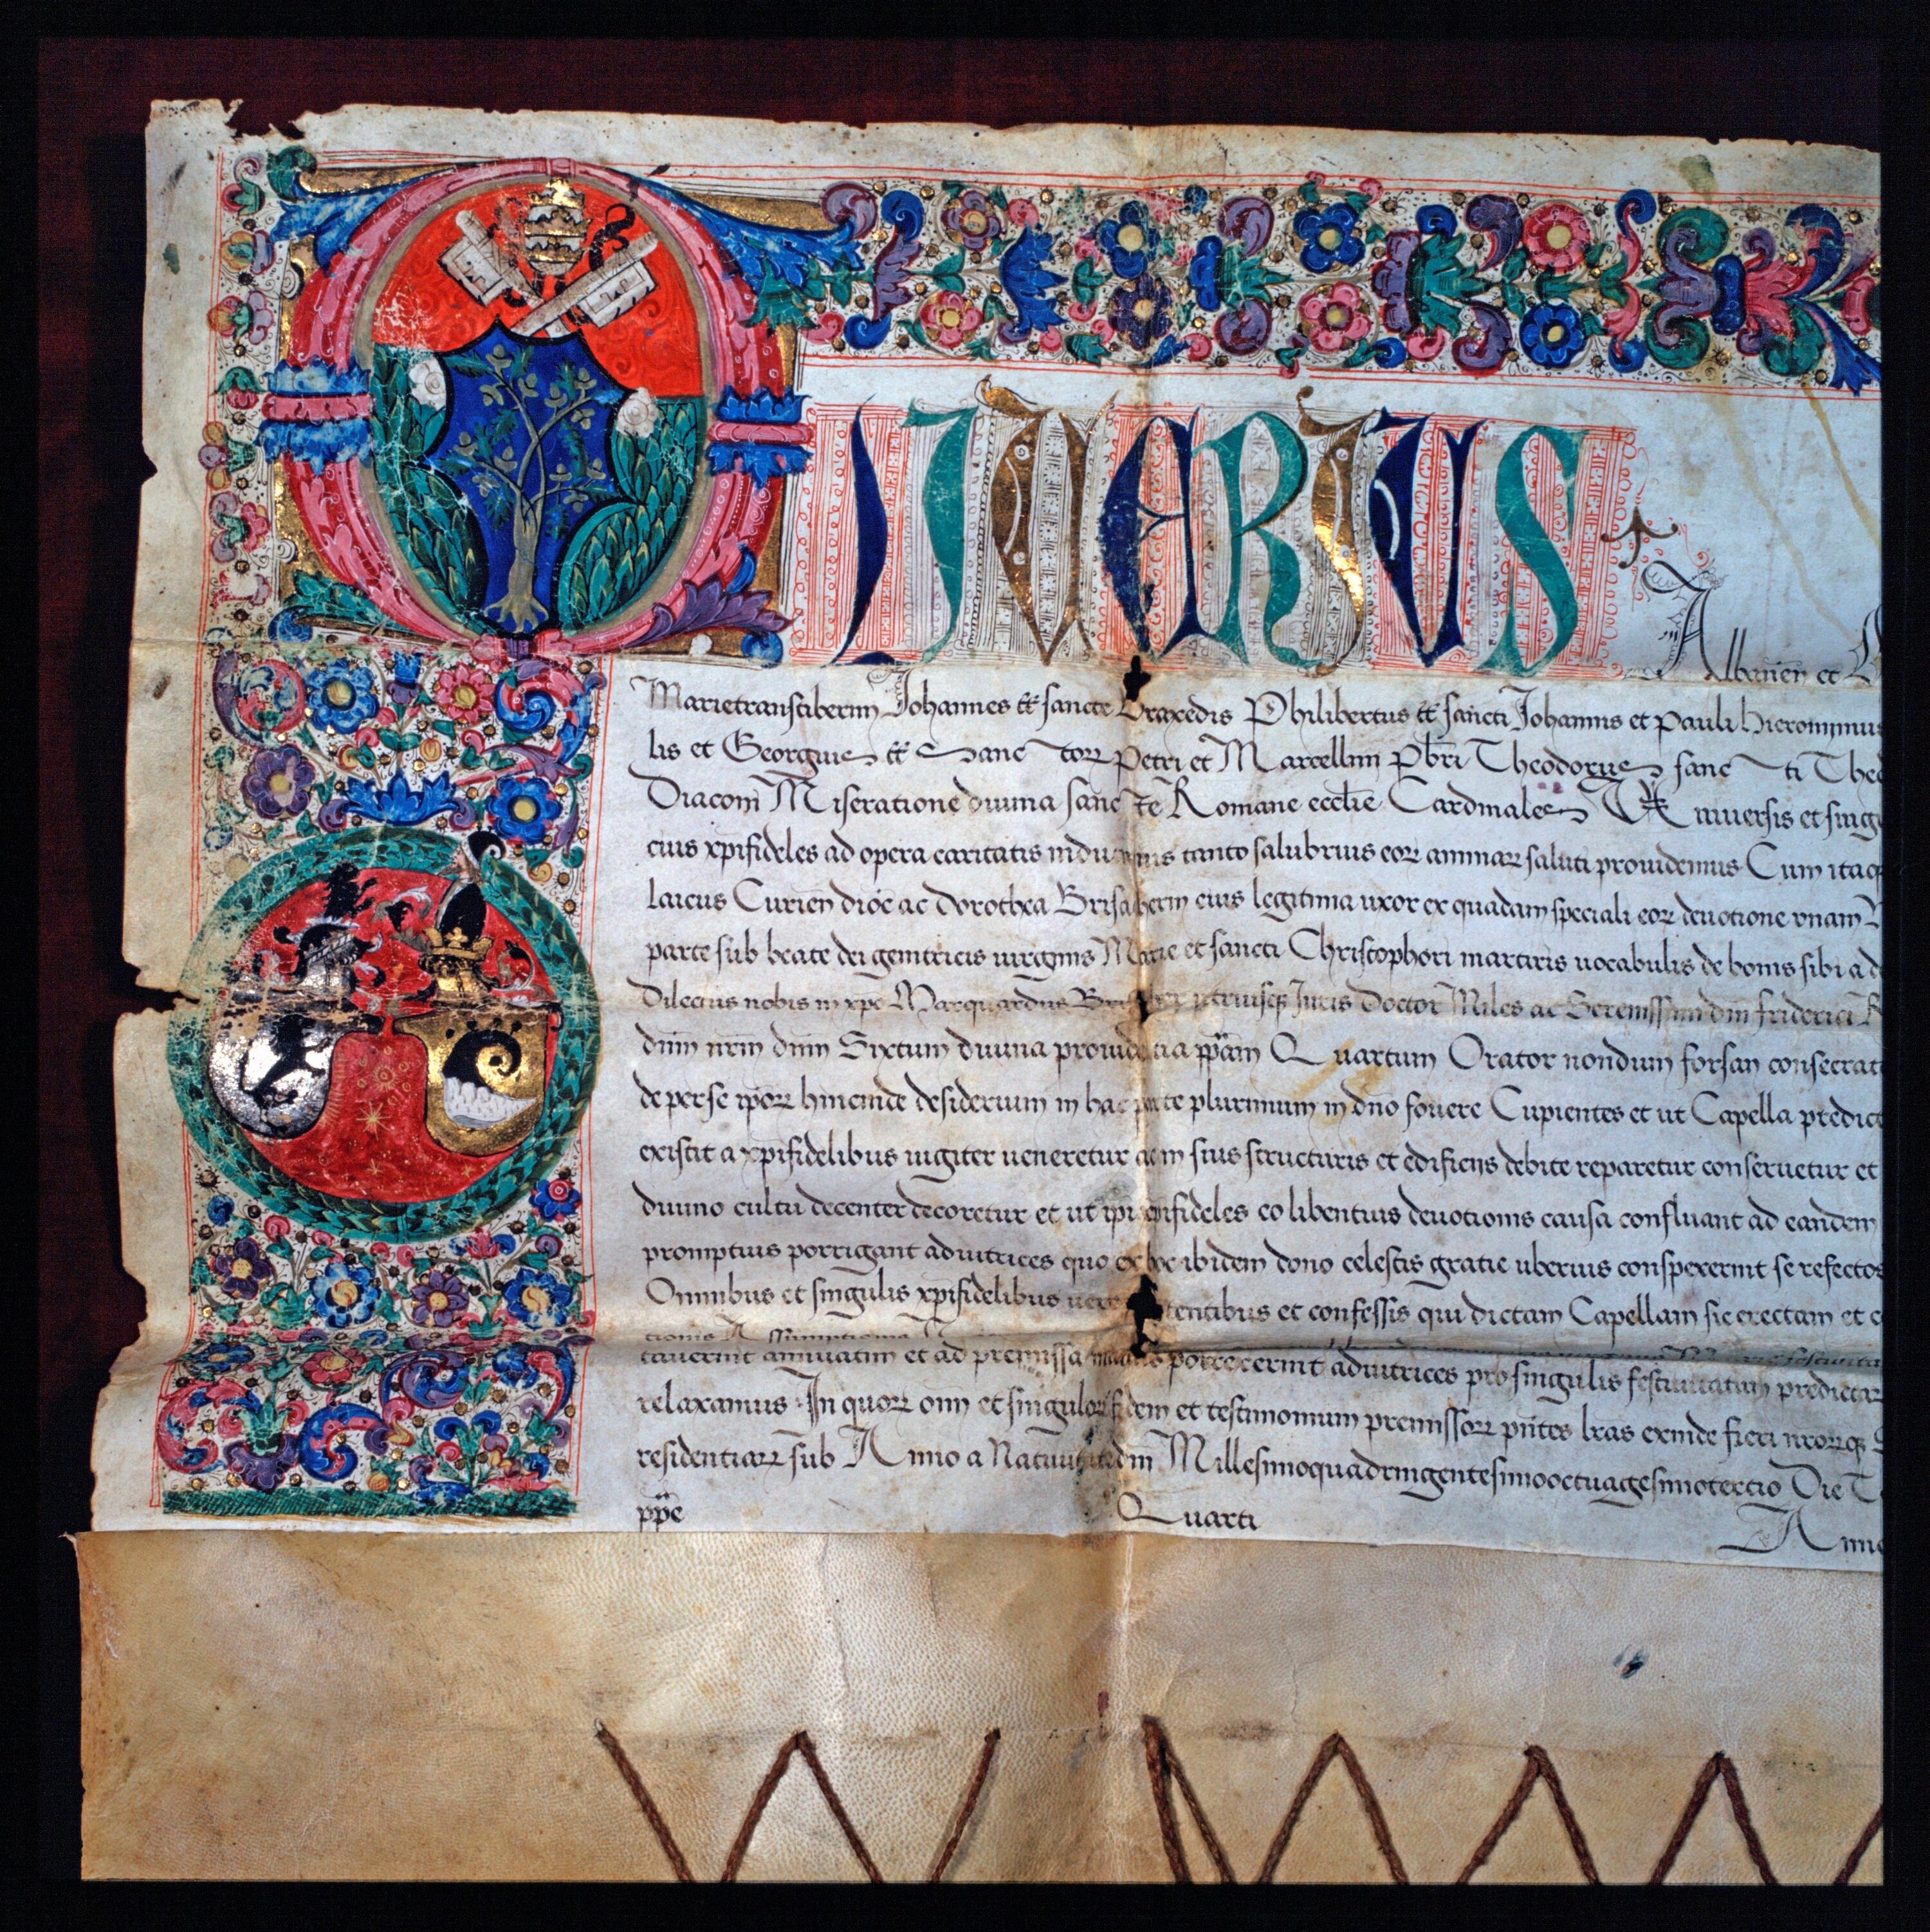 OLIVERIUS
Albanen et
Marietranstiberim Johannes tt sancte Praxedis Philibertus tt sancti Johannis et Pauli hieronimus
lis et Georgius tt Sanctorr Petri et Marcellini Pbri Theodorus sancti Theo
Diaconi Miseratione diuina sancte Romane ecclie Cardinales Uniuersis et sing
cius xpifideles ad opera caritatis inducimus tanto salubrius eorr animarr saluti prouidemus Cum itaq
laicus Curien dioc ac Dorothea Brisacherin eius legitima uxor ex quadam speciali eorr deuotione vnam
parte sub beate dei genitricis uirginis Marie et sancti Christophori martiris uocabulis de bonis sibi a d
Dilectus nobis in xpo Marquardus Brisacher utriusq Juris Doctor Miles ac Serenissimi dni friderici R
dnm nrm dnm Sixtum diuina prouidentia ppam Quartum Orator nondum forsan consecrat
de per se iporr hincinde desiderium in hac parte plurimum in dno fouere Cupientes et ut Capella predict
existit a xpifidelibus iugiter ueneretur ac in suis structuris et edificijs debite reparetur conseruetur et
diuino cultu decenter decoretur et ut ipi xpifideles eo libentius deuotionis causa confluant ad eandem
promptius porrigant adiutrices quo ex hoc ibidem dono celestis gratie uberius conspexerint se refectos
Omnibus et singulis xpifidelibus uere penitentibus et confessis qui dictam Capellam sic erectam et c
tionis Assumptionis
tauerint annuatim et ad premissa manus porrexerint adiutrices pro singulis festiuitatum predictar
relaxamus In quorr omnium et singulorr fidem et testimonium premissorr pntes lras exinde fieri nrorrq
residentiarr sub Anno a Natiuitate dni Millesimoquadringentesimooctuagesimotertio Die
ppe Quarti Anno